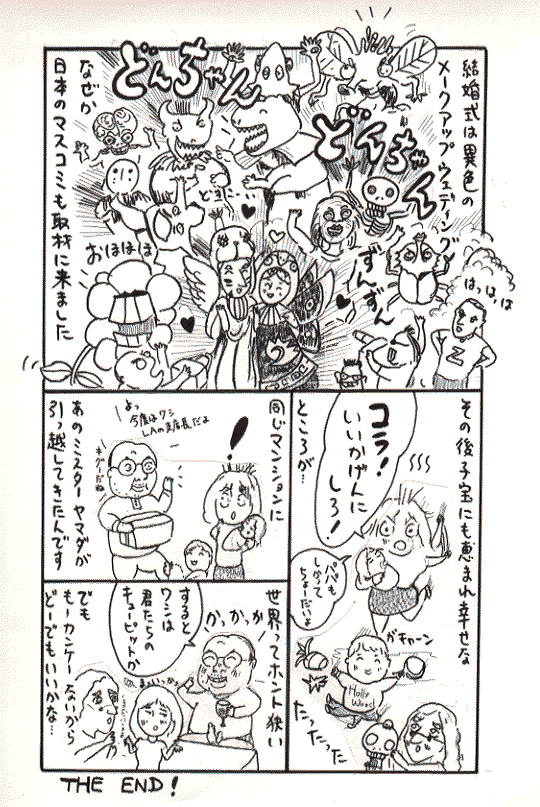 結婚式は異色の
メークアップウェディング
どんちゃん
どんちゃん
ずんずん
はっはっは
Z
どさくさ
おほほほ
なぜか
日本のマスコミも取材に来ました
その後子宝にも恵まれ幸せな
コラ!
いいかげんに
しろ!
ところが…
パパも
しかって
ちょーだいよ
ガチャーン
Holly
Wood
たったった
同じマンションに
!
よっ
今度はワシ
LAの支店長だよ
あのミスターヤマダが
引っ越してきたんです
世界ってホント狭い
かっかっか
すると
ワシは
君たちの
キューピットか
まぁいっかぁ
でも
もーカンケーないから
どーでもいいかな…
THE END!